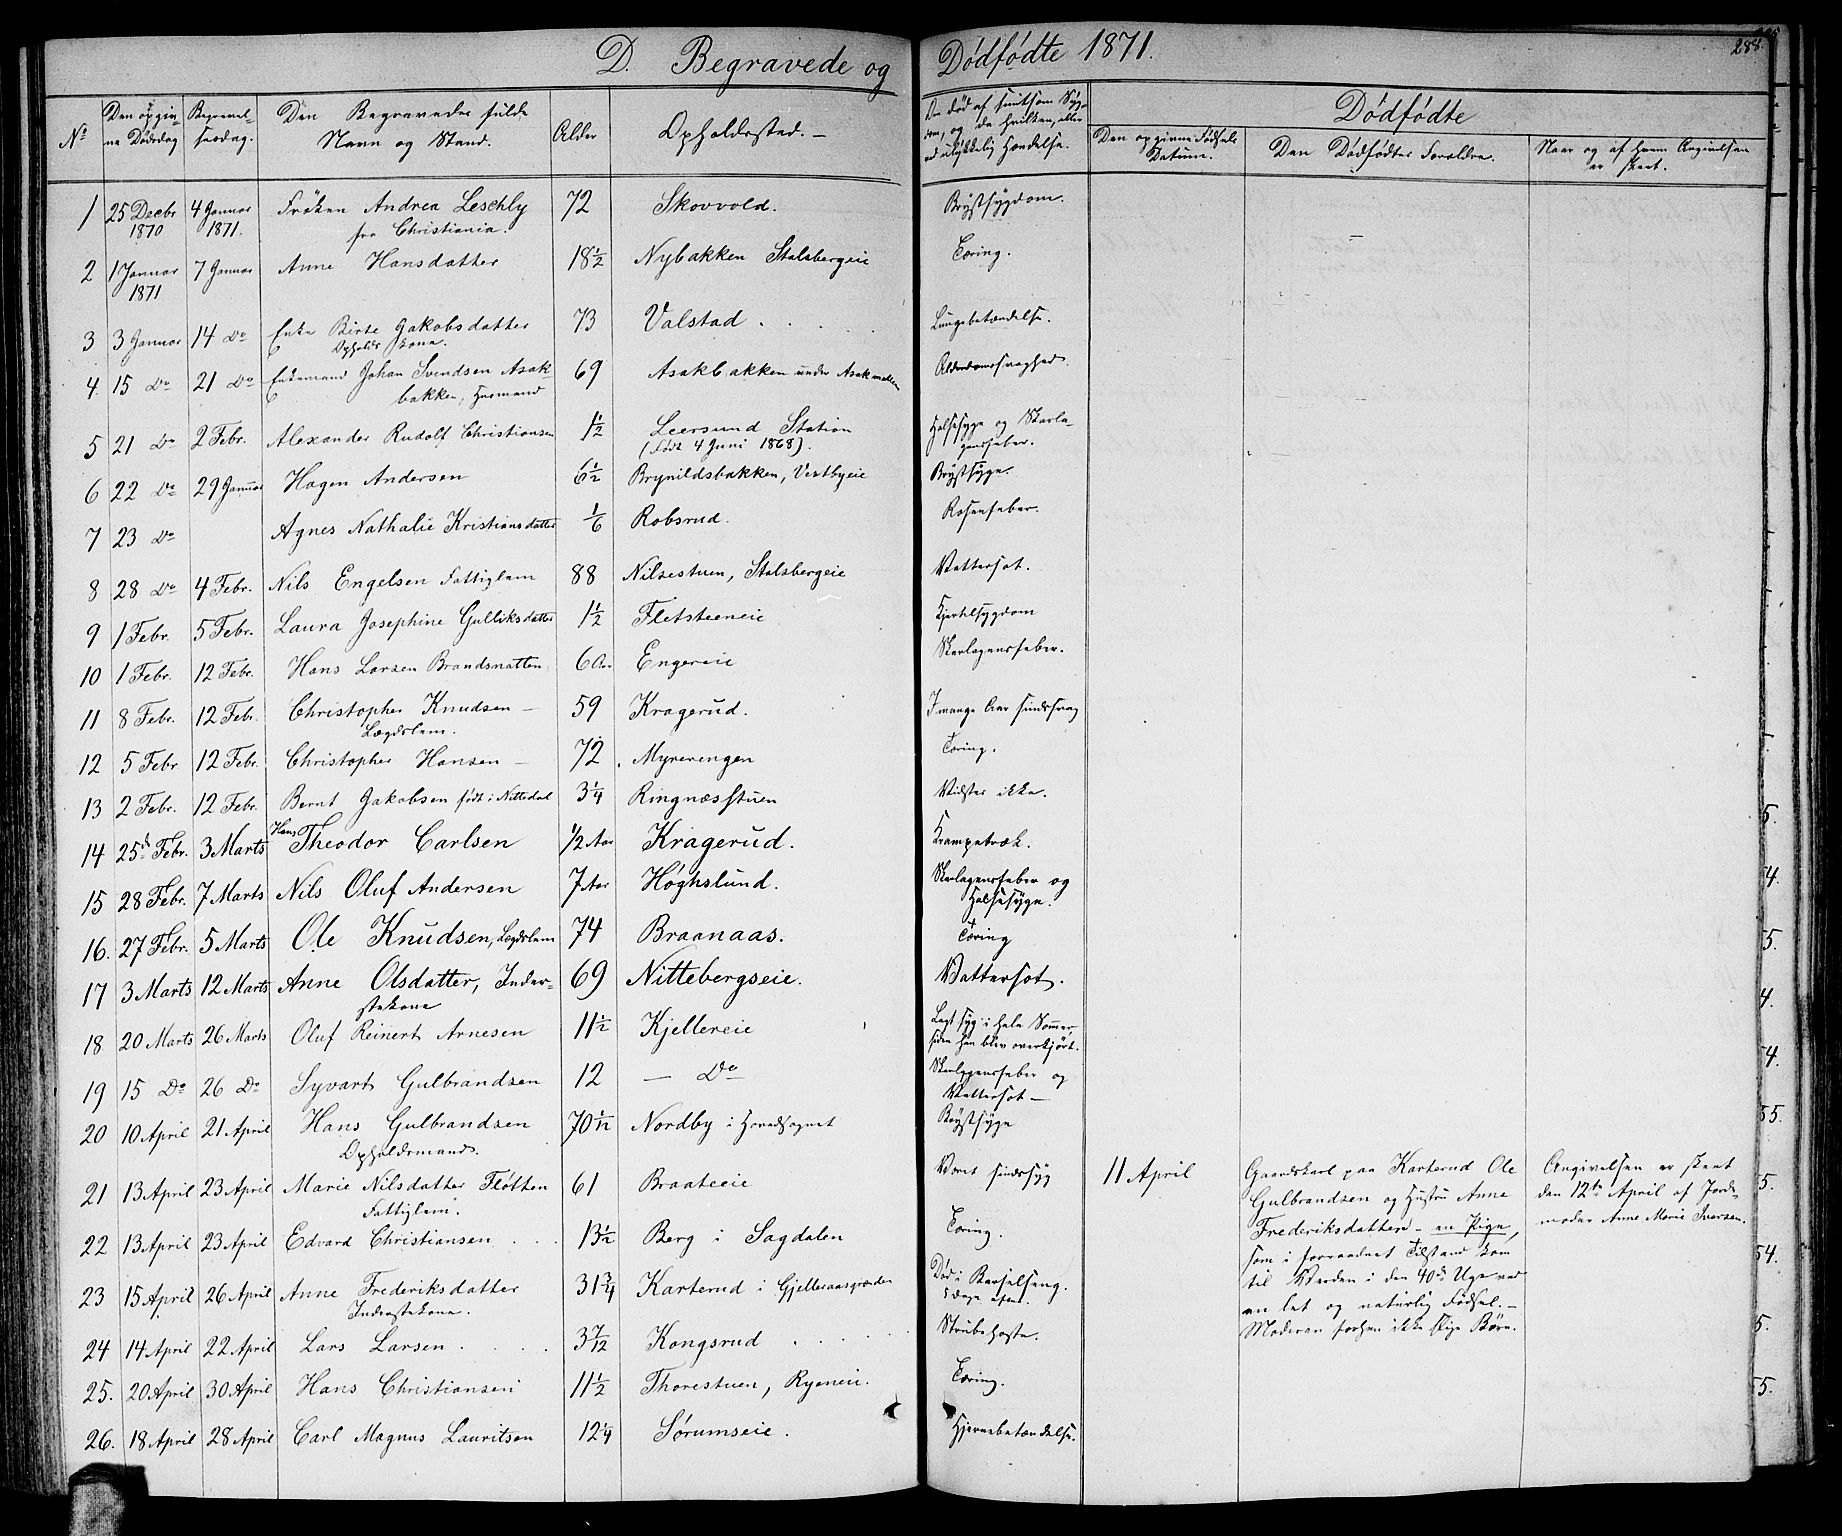 D. Begravede og Dødfødte 1871.
288.
No
Den opgiv-
ne Dødsdag
Begravel-
sesdag.
Den Begravedes fulde
Navn og Stand.
Alder
Opholdssted.
Er død af smitsom Syg-
dom, og da hvilken, eller
ved ulykkelig Hændelse.
Dødfødte
Den opgivne Fødsels
Datum.
Den Dødfødtes Forældre.
Naar og af hvem Angivelsen
er skeet.
1 25 Decbr 1870 4 Januar 1871. Frøken Andrea Leschly 72 Skovvold. Brystsygdom.
fra Christiania.
2 1 Januar 1871 7 Januar Anne Hansdatter 18 1/2 Nybakken Stalsbergeie Tæring.
3 3 Januar 14 Do Enke Birte Jakobsdatter 73 Valstad . Lungebetændelse.
Opholds kone.
4. 15 Do 21 Do Enkemand Johan Svendsen Asak- 69 Asakbakken under Asak mellem Alderdomssvaghed.
bakken, Huusmand
5 21 Do 2 Febr. Alexander Rudolf Christiansen 1/2 Leersund Station Halssyge og Skarla-
(født 4 Juni 1868). gensfeber.
6 22 Do 29 Januar Hagen Andersen 6 1/2 Brynildsbakken, Vestbyeie Brystsyge.
7 23 Do Agnes Nathalie Kristiansdatter 1/6 Robsrud. Rosenfeber.
8 28 Do 4 Febr. Nils Engelsen Fattiglem 88 Nilsestuen, Stalsbergeie Vattersot.
9 1 Febr. 5 Febr. Laura Josephine Gulliksdatter 1 1/2 Fletsteeneie Kjertelsygdom
10 1 Febr. 12 Febr. Hans Larsen Brandsnatten 6 Aar Engereie Skarlagensfeber.
11 8 Febr. 12 Febr. Christopher Knudsen — 59 Kragerud. I mange Aar sindssvag
Lægdslem.
12 5 Febr. 12 Febr. Christopher Hansen — 72. Myrerengen Tæring.
13 2 Febr. 12 Febr. Bernt Jakobsen født i Nittedal 3 1/4 Ringnæsstuen Vidstes ikke.
14 25de Febr. 3 Marts Hans Theodor Carlsen 1/2 Aar Kragerud. Krampetræk.
15 28 Febr. 7 Marts Nils Oluf Andersen 7 Aar Høghslund. Skarlagensfeber og
Halssyge.
16. 27 Febr. 5 Marts Ole Knudsen, Lægdslem 74 Braanaas. Tæring
17 3 Marts 12 Marts Anne Olsdatter, Inder- 69 Nittebergseie. Vattersot.
stekone
18 20 Marts 26 Marts Oluf Reinert Arnesen 11 1/2 Kjellereie Lagt syg i hele Sommer,
siden han blev overkjørt.
19 15 Do 26 Do Syvart Gulbrandsen 12 — Do Skarlagensfeber og
Vattersot —
20 10 April 21 April Hans Gulbrandsen 70 1/12 Nordby i Hovedsognet Brystsyge
Opholdsmand.
21 13 April 23 April Marie Nilsdatter Fløtten 61 Braateeie Været sindssyg
Fattiglem.
22 13 April 23 April Edvard Christiansen . . . 13 1/2 Berg i Sagdalen Tæring.
23 15 April 26 April Anne Frederiksdatter 31 3/4 Karterud i Gjelleraasgrænden Død i Barselseng.
Inderstekone. 5 Dage efter.
24 14 April 22 April Lars Larsen . . . . 3 7/12 Kongsrud Strubehoste.
25. 20 April 30 April Hans Christiansen 11 1/2 Thorestuen, Ryeneie. Tæring.
26. 18 April 28 April Carl Magnus Lauritsen 12 1/4 Sørumseie. Hjernebetændelse.
11 April
Gaardskarl paa Karterud Ole
Gulbrandsen og Hustru Anne
Frederiksdatter — en Pige,
som i forraadnet Tilstand kom
til Verden i den 40de Uge ved
en let og naturlig Fødsel. —
Moderen forhen ikke slige Børn.
Angivelsen er skeet
den 12te April af Jorde-
moder Anne Marie Iversen.